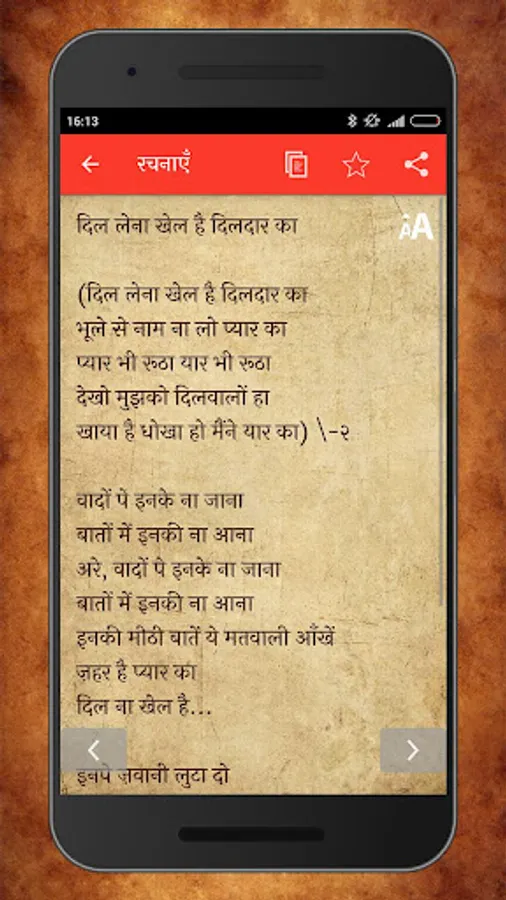 16:13
रचनाएँ
AA
दिल लेना खेल है दिलदार का
(दिल लेना खेल है दिलदार का
भूले से नाम ना लो प्यार का
प्यार भी रूठा यार भी रूठा
देखो मुझको दिलवालों हा
खाया है धोखा हो मैंने यार का) \-२
वादों पे इनके ना जाना
बातों में इनकी ना आना
अरे, वादों पे इनके ना जाना
बातों में इनकी ना आना
इनकी मीठी बातें ये मतवाली आँखें
ज़हर है प्यार का
दिल ना खेल है...
इनपे ज़वानी लुटा दो